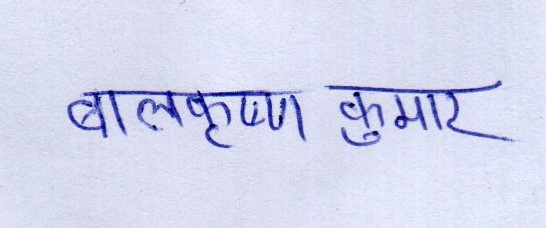 बालकृष्ण कुमार